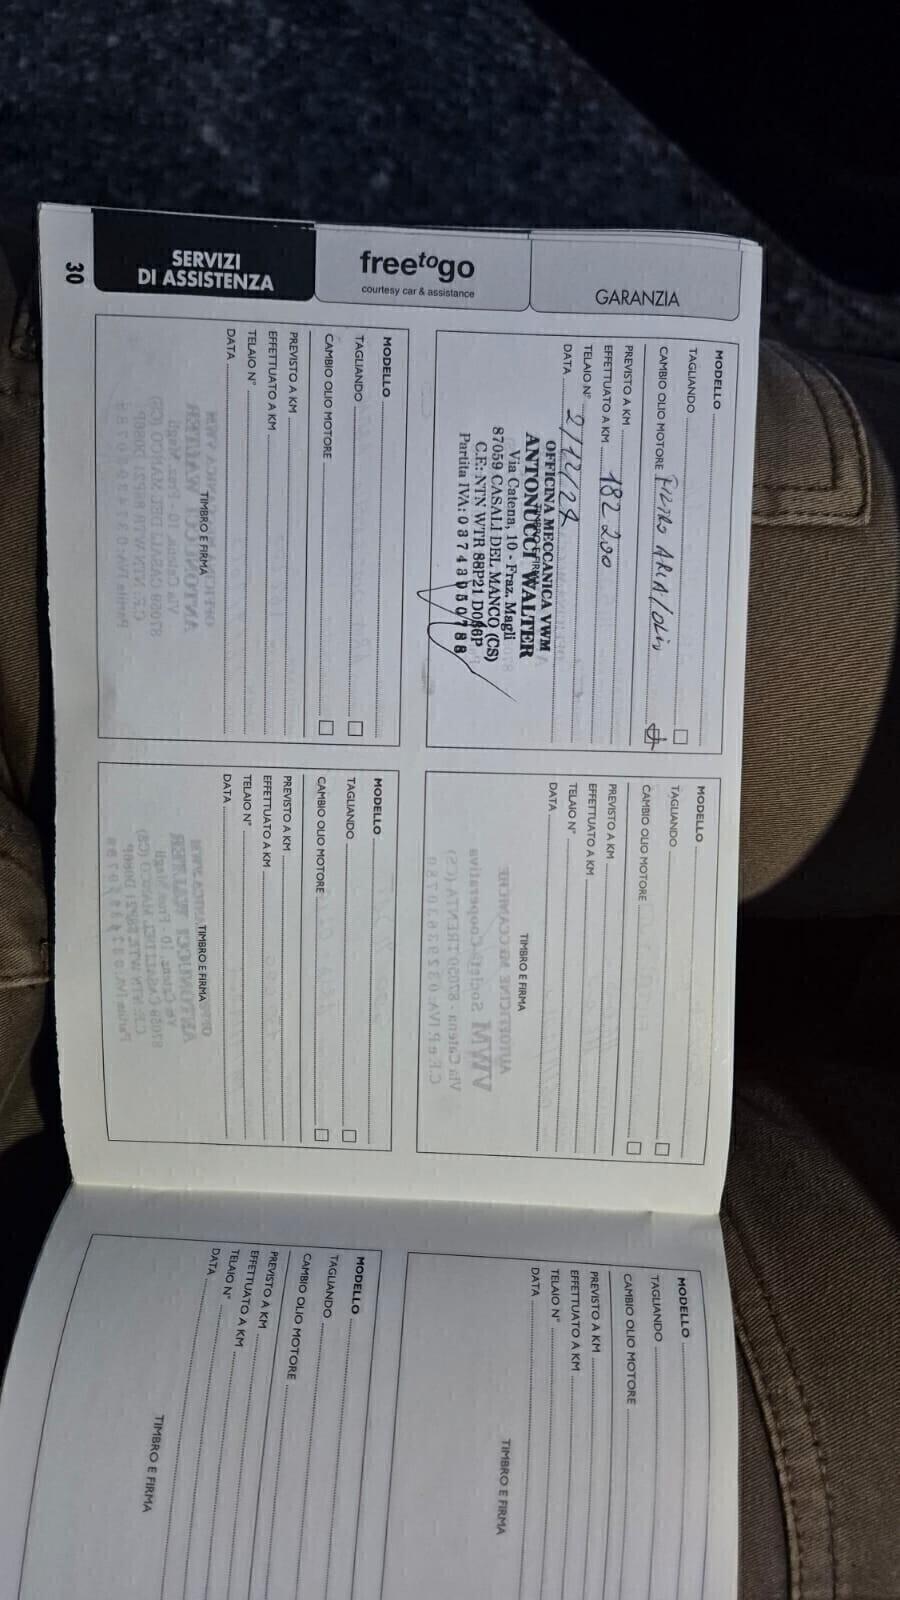 30
SERVIZI
DI ASSISTENZA
freetogo
courtesy car & assistance
GARANZIA
MODELLO
TAGLIANDO
CAMBIO OLIO MOTORE FILTRO ARIA/OLIO
PREVISTO A KM
EFFETTUATO A KM 182 200
TELAIO N°
DATA 2/12/24
TIMBRO E FIRMA
OFFICINA MECCANICA VWM
ANTONUCCI WALTER
Via Catena, 10 - Fraz. Magli
87059 CASALI DEL MANCO (CS)
C.F.: NTN WTR 88P21 D086P
Partita IVA: 03743050788
MODELLO
TAGLIANDO
CAMBIO OLIO MOTORE
PREVISTO A KM
EFFETTUATO A KM
TELAIO N°
DATA
TIMBRO E FIRMA
MODELLO
TAGLIANDO
CAMBIO OLIO MOTORE
PREVISTO A KM
EFFETTUATO A KM
TELAIO N°
DATA
TIMBRO E FIRMA
MODELLO
TAGLIANDO
CAMBIO OLIO MOTORE
PREVISTO A KM
EFFETTUATO A KM
TELAIO N°
DATA
TIMBRO E FIRMA
MODELLO
TAGLIANDO
CAMBIO OLIO MOTORE
PREVISTO A KM
EFFETTUATO A KM
TELAIO N°
DATA
TIMBRO E FIRMA
MODELLO
TAGLIANDO
CAMBIO OLIO MOTORE
PREVISTO A KM
EFFETTUATO A KM
TELAIO N°
DATA
TIMBRO E FIRMA